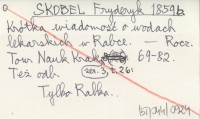 SKOBEL Fryderyk 1859b
Krótka wiadomość o wodach
lekarskich w Rabce. — Rocz.
Tow Nauk Krak 69-82.
Też odb. ser. 3, t. 26.
Tylko Rabka.